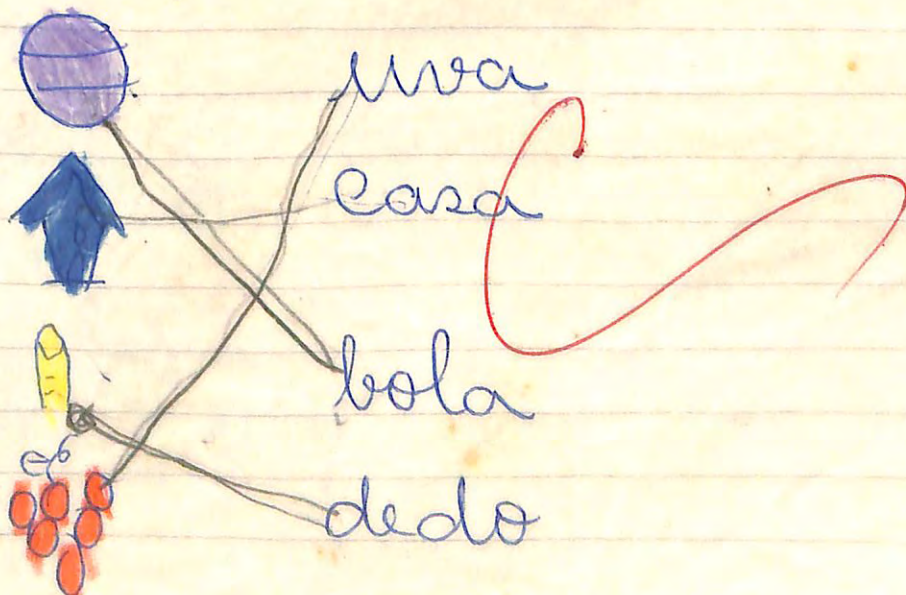 uva
casa
bola
dedo